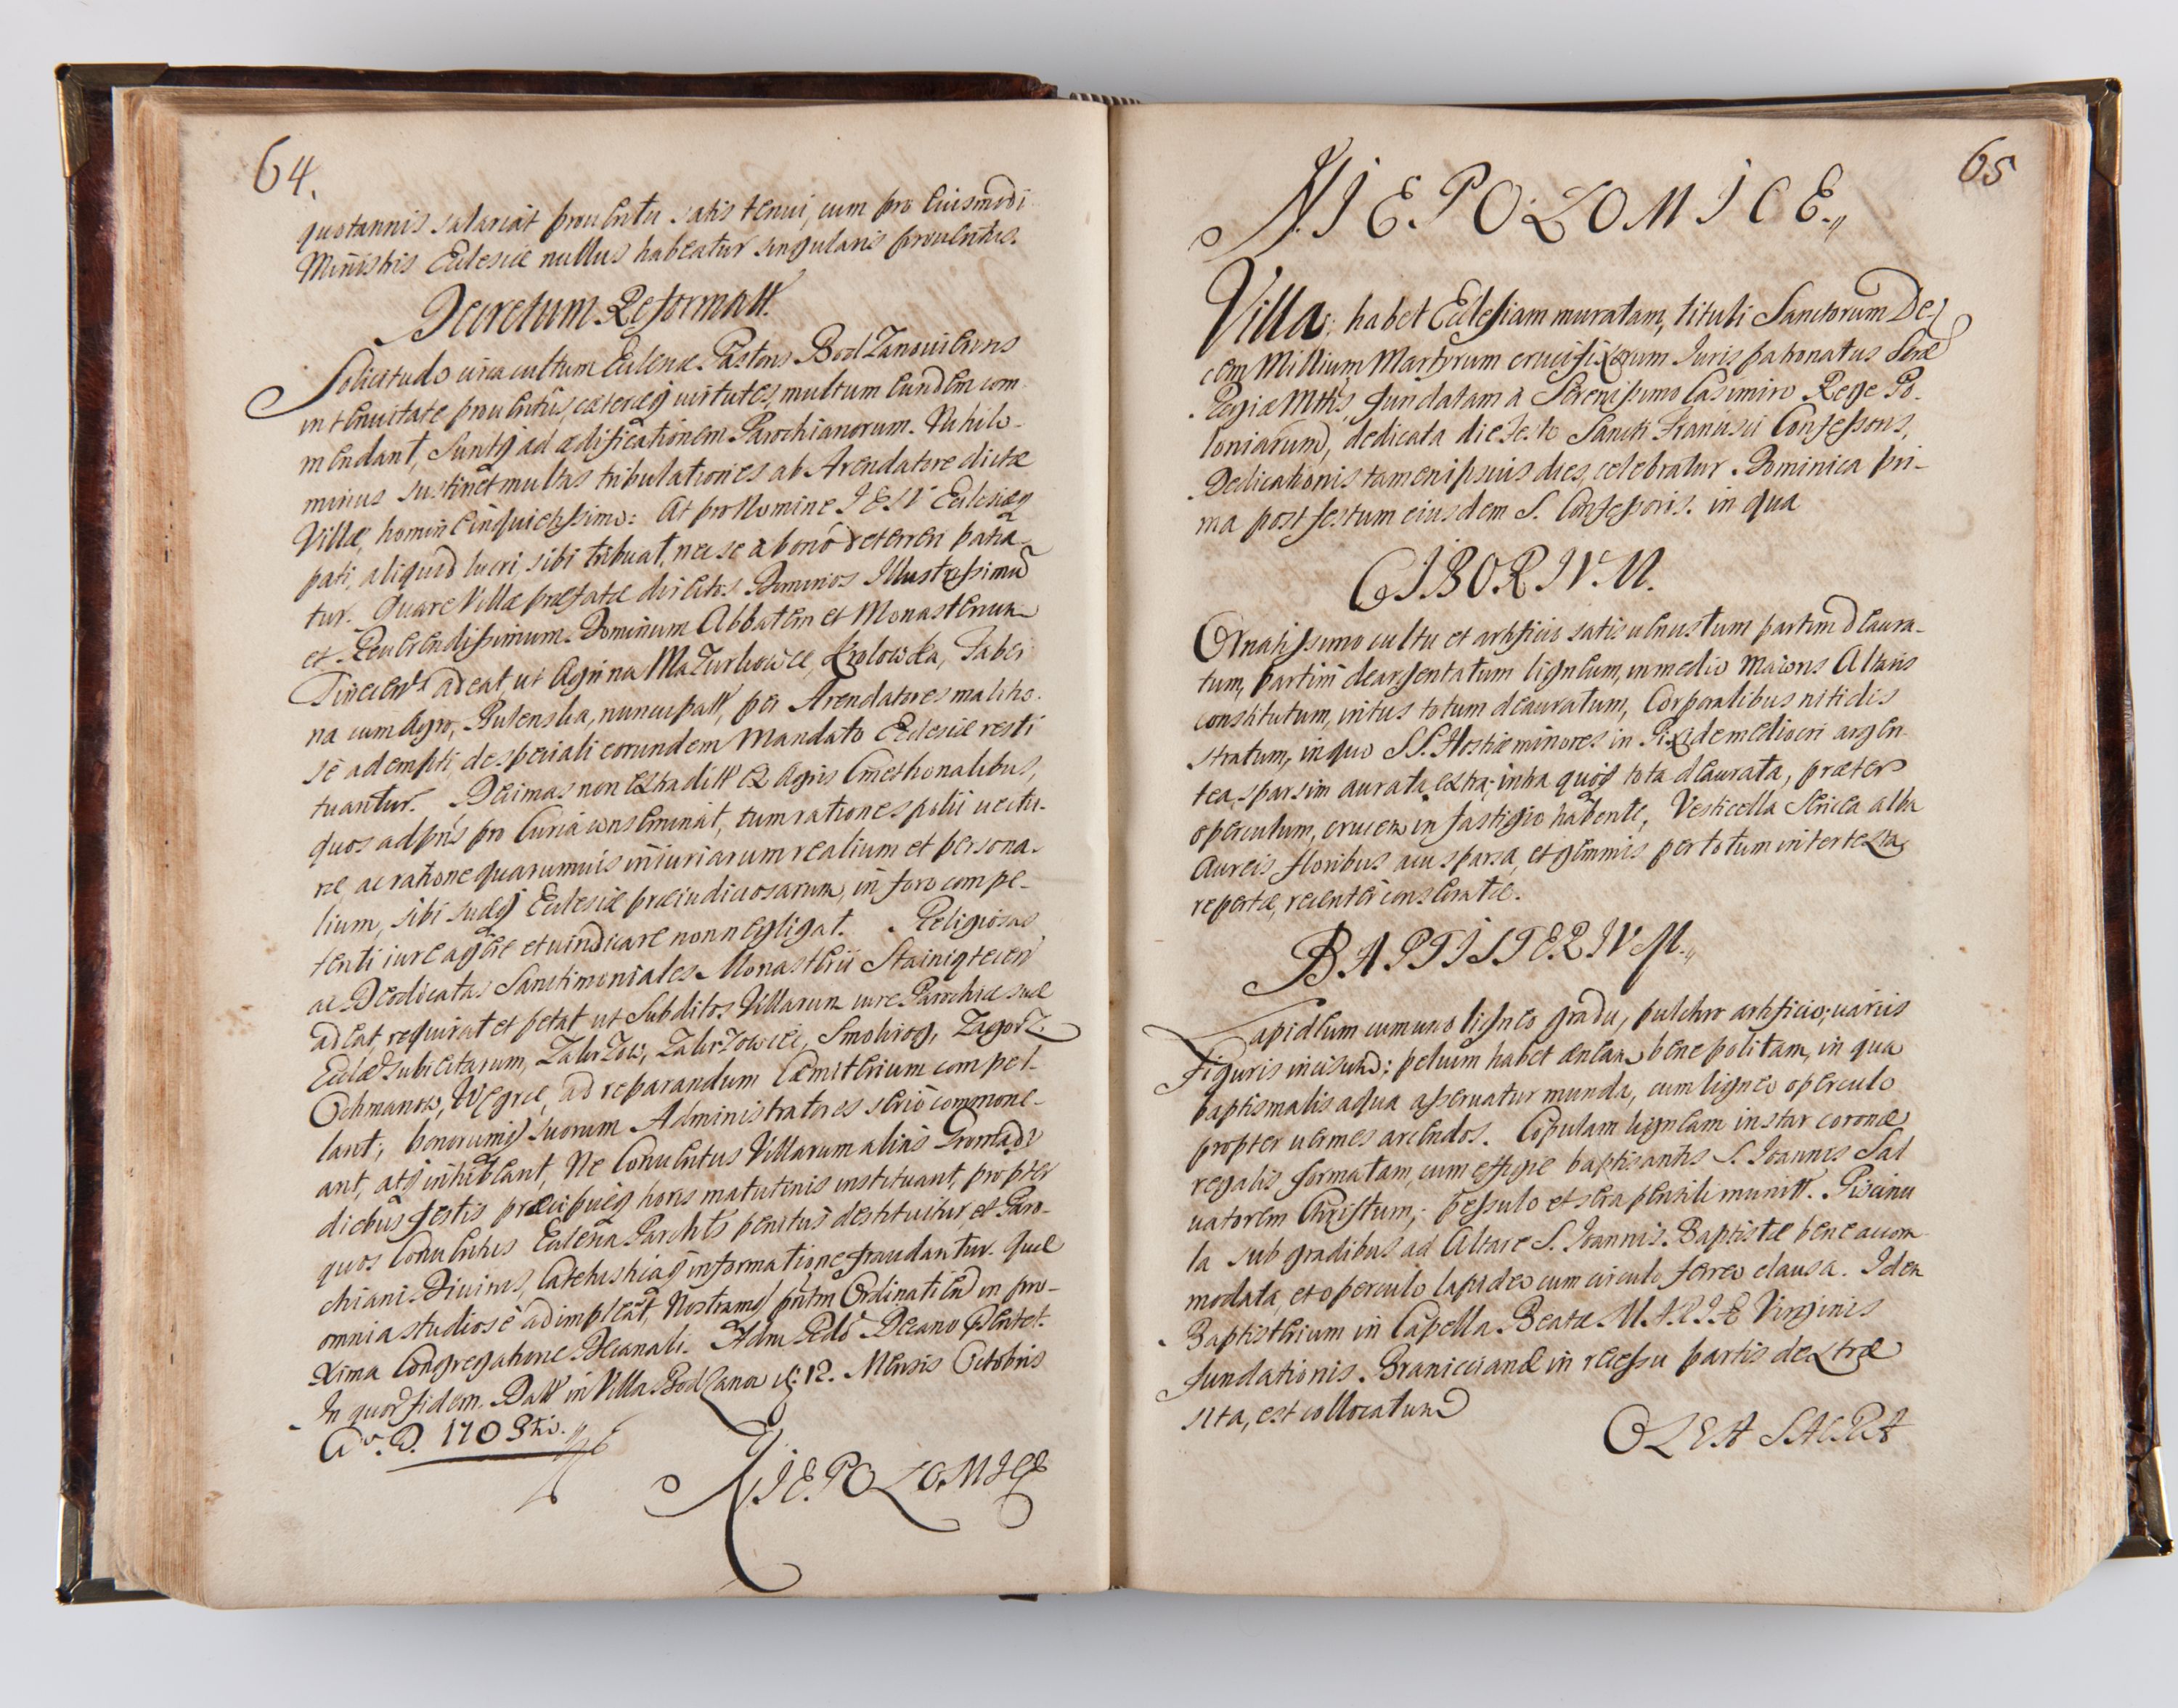 64.
quotannis salariat prouentu satis tenui, cum pro eiusmodi
Ministris Ecclesiæ nullus habeatur singularis prouentus.
Decretum Reformatt.
Solicitudo circa cultum Ecclenæ Pastoris Bodzanouicens
in tenuitate prouentus, cæteræq uirtutes, multum eundem com
mendant, suntq ad ædificationem Parochianorum. Nihilo-
minus sustinet multas tribulationes ab Arendatore dictæ
Villæ, homine inquietissimo: At pro Nomine IESV Ecclesiæq
pati, aliquid lucri sibi tribuat, nec se a bono deterreri patia
tur. Quare Villæ præfatæ directos Dominos Illustrissimu
et Reuerendissimum Dominum Abbatem et Monasterium
Tinecens adeat, ut Agri na Mazurkowce, Krolowka, Taber
na cum Agro, Putenska, nuncupatt, per Arendatores malitio
se adempti, de speciali eorundem Mandato Ecclesiæ resti
tuantur. Decimas non extraditt ex Agris Cmethonalibus,
quos ad pns pro Curia conseminat, tum ratione spolii uectu-
ræ, ac ratione quarumuis iniuriarum realium et persona-
lium, sibi suæq Ecclesiæ præiudiciosarum, in foro compe-
tenti iure agere et uindicare non negligat. Religiosas
ac Deodicatas Sanctimoniales Monasterii Stainiątecen
adeat, requirat et petat ut Subditos Villarum iure Parochiæ suæ
Ecclæ subiectarum, Zakrzow, Zakrzowcei, Smokrog, Zagorz
Ochmanow, Wegrce, ad reparandum Cæmiterium compel-
lant; bonorumq suorum Administratores serio commone-
ant, atq inhibeant, Ne Conuentus Villarum alias Gromady
diebus festis præcipueq horis matutinis instituant, propter
quos Conuentus Ecclena Parchls penitus destituitur, et Paro-
chianis Diuinis, Catehisticaq informatione fraudantur. Quæ
omnia studiose adimpleat, Nostramq pntm Ordinatiem in pro-
xima Congregatione Decanali. Adm Rdo Decano
In quor fidem. Datt in Villa Bodzanow 12. Mensis Octobris
Ao. D. 1703tio.
NIEPOLOMICE
65
NIEPOLOMICE.
Villa: habet Ecclesiam muratam, tituli Sanctorum De
cem Millium Martyrum crucifixorum Iuris patronatus Seræ
Regiæ Mttis, fundatam a Serenissimo Casimiro Rege Po-
loniarum, dedicata die festo Sancti Francisci Confessoris,
Dedicationis tamen ipsius dies, celebratur Dominica pri-
ma post festum eiusdem S. Confessoris. in qua
CIBORIVM.
Ornatissimo cultu et artificio satis uenustum partim deaura-
tum, partim deargentatum ligneum, in medio maioris Altaris
constitutum, intus totum deauratum, Corporalibus nitidis
stratum, in quo SS. Hostiæ minores in Pixide mediocri argen
tea, sparsim aurata extra; intra quoq tota deaurata, præter
operculum, crucem in fastigio habente, Vesticella sericea alba
Aureis floribus acu sparsa, et gemmis per totum intertexta,
repertæ, recenter conseratæ.
BAPTISTERIVM.
Lapideum cum uno ligneo gradu, pulchro artificio, uariis
figuris incisum; peluim habet æneam bene politam, in qua
baptismalis aqua asseruatur munda, cum ligneo operculo
propter uermes arcendos. Copulam ligneam instar coronæ
regalis formatam, cum effigie baptisantis S. Ioannis Sal
uatorem Christum, pessulo et sera pensili munitt. Piscinu
la sub gradibus ad Altare S. Ioannis Baptistæ bene accom
modata, et operculo lapideo cum circulo ferreo clausa. Idem
Baptisterium in Capella Beatæ MARIÆ Virginis
fundationis Braniccianæ in recessu partis dextræ
sita, est collocatum
OLEA SACRA